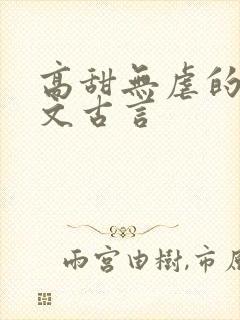 高甜無虐的
文古言
雨宮由樹,市原